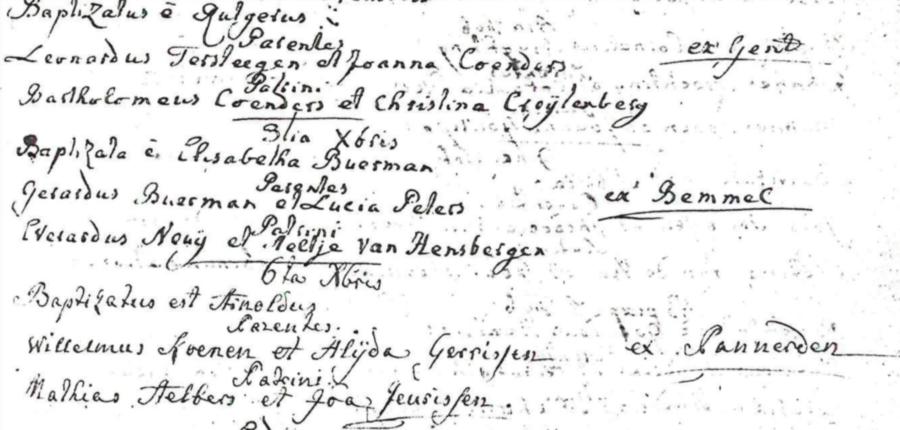 Baptizatus ē Rutgerus
Parentes
Leonardus Tersteegen et Joanna Coenders
ex Gent
Patrini
Bartholomeus Coenders et Christina Croÿlenberg
3tia Xbris
Baptizata ē Elisabetha Buerman
Parentes
Gerardus Buerman et Lucia Peters
ex Bemmel
Patrini
Everardus Nouÿ et Neeltje van Hensbergen
6ta Xbris
Baptizatus est Arnoldus
Parentes.
Willelmus Koenen et Alÿda Gerrissen
ex Pannerden
Patrini
Mathias Aelbers et Joa Jeurissen.